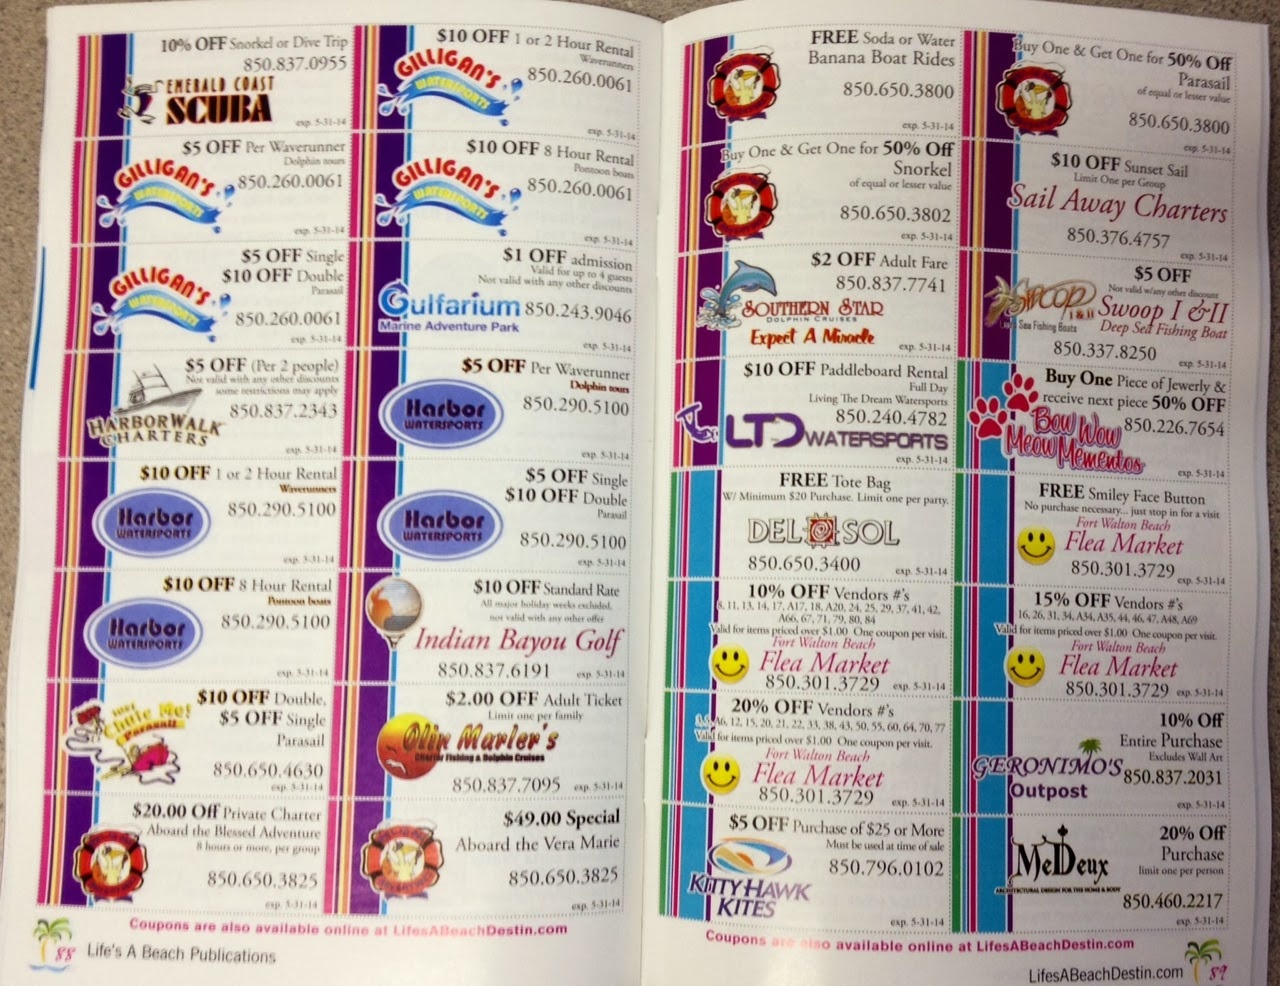 10% OFF Snorkel or Dive Trip
850.837.0955
EMERALD COAST
SCUBA
exp. 5-31-14
$10 OFF 1 or 2 Hour Rental
Waverunners
GILLIGAN'S
WATERSPORTS
850.260.0061
exp. 5-31-14
$5 OFF Per Waverunner
Dolphin tours
GILLIGAN'S
WATERSPORTS
850.260.0061
exp. 5-31-14
$10 OFF 8 Hour Rental
Pontoon boats
GILLIGAN'S
WATERSPORTS
850.260.0061
exp. 5-31-14
$5 OFF Single
$10 OFF Double
Parasail
GILLIGAN'S
WATERSPORTS
850.260.0061
exp. 5-31-14
$1 OFF admission
Valid for up to 4 guests
Not valid with any other discounts
Gulfarium
Marine Adventure Park
850.243.9046
exp. 5-31-14
$5 OFF (Per 2 people)
Not valid with any other discounts
some restrictions may apply
850.837.2343
HARBORWALK
CHARTERS
exp. 5-31-14
$5 OFF Per Waverunner
Dolphin tours
Harbor
WATERSPORTS
850.290.5100
exp. 5-31-14
$10 OFF 1 or 2 Hour Rental
Waverunners
Harbor
WATERSPORTS
850.290.5100
exp. 5-31-14
$5 OFF Single
$10 OFF Double
Parasail
Harbor
WATERSPORTS
850.290.5100
exp. 5-31-14
$10 OFF 8 Hour Rental
Pontoon boats
Harbor
WATERSPORTS
850.290.5100
exp. 5-31-14
$10 OFF Standard Rate
All major holiday weeks excluded,
not valid with any other offer
Indian Bayou Golf
850.837.6191
exp. 5-31-14
$10 OFF Double,
$5 OFF Single
Parasail
Just Chute Me!
Parasail
850.650.4630
exp. 5-31-14
$2.00 OFF Adult Ticket
Limit one per family
Olin Marler's
Charter Fishing & Dolphin Cruises
850.837.7095
exp. 5-31-14
$20.00 Off Private Charter
Aboard the Blessed Adventure
8 hours or more, per group
850.650.3825
exp. 5-31-14
$49.00 Special
Aboard the Vera Marie
850.650.3825
exp. 5-31-14
Coupons are also available online at LifesABeachDestin.com
88 Life's A Beach Publications
FREE Soda or Water
Banana Boat Rides
850.650.3800
exp. 5-31-14
Buy One & Get One for 50% Off
Parasail
of equal or lesser value
850.650.3800
exp. 5-31-14
Buy One & Get One for 50% Off
Snorkel
of equal or lesser value
850.650.3802
exp. 5-31-14
$10 OFF Sunset Sail
Limit One per Group
Sail Away Charters
850.376.4757
exp. 5-31-14
$2 OFF Adult Fare
850.837.7741
SOUTHERN STAR
DOLPHIN CRUISES
Expect A Miracle
exp. 5-31-14
$5 OFF
Not valid w/any other discount
SWOOP
I & II
Deep Sea Fishing Boats
Swoop I & II
Deep Sea Fishing Boat
850.337.8250
exp. 5-31-14
$10 OFF Paddleboard Rental
Full Day
Living The Dream Watersports
850.240.4782
LTD WATERSPORTS
exp. 5-31-14
Buy One Piece of Jewerly &
receive next piece 50% OFF
850.226.7654
Bow Wow
Meow Mementos
exp. 5-31-14
FREE Tote Bag
W/ Minimum $20 Purchase. Limit one per party.
DEL SOL
850.650.3400
exp. 5-31-14
FREE Smiley Face Button
No purchase necessary... just stop in for a visit
Fort Walton Beach
Flea Market
850.301.3729
exp. 5-31-14
10% OFF Vendors #'s
8, 11, 13, 14, 17, A17, 18, A20, 24, 25, 29, 37, 41, 42,
A66, 67, 71, 79, 80, 84
Valid for items priced over $1.00 One coupon per visit.
Fort Walton Beach
Flea Market
850.301.3729
exp. 5-31-14
15% OFF Vendors #'s
16, 26, 31, 34, A34, A35, 44, 46, 47, A48, A69
Valid for items priced over $1.00 One coupon per visit.
Fort Walton Beach
Flea Market
850.301.3729
exp. 5-31-14
20% OFF Vendors #'s
A6, 12, 15, 20, 21, 22, 33, 38, 43, 50, 55, 60, 64, 70, 77
Valid for items priced over $1.00 One coupon per visit.
Fort Walton Beach
Flea Market
850.301.3729
exp. 5-31-14
10% Off
Entire Purchase
Excludes Wall Art
GERONIMO'S
Outpost
850.837.2031
exp. 5-31-14
$5 OFF Purchase of $25 or More
Must be used at time of sale
850.796.0102
KITTY HAWK
KITES
exp. 5-31-14
20% Off
Purchase
limit one per person
MeDeux
ARCHITECTURAL DESIGN FOR THE HOME & BODY
850.460.2217
exp. 5-31-14
Coupons are also available online at LifesABeachDestin.com
LifesABeachDestin.com 89